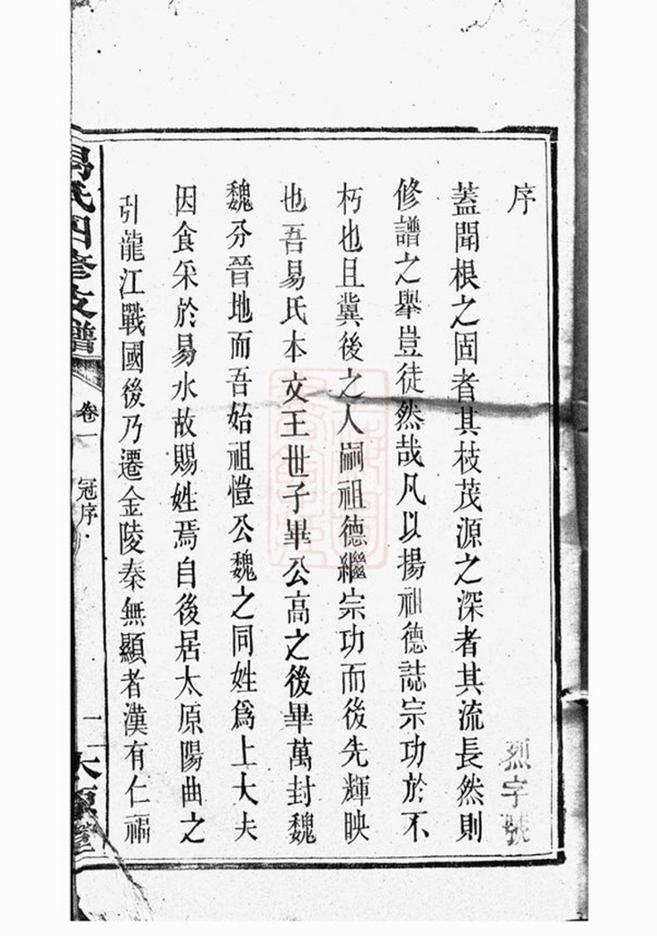 序
烈字號
蓋聞根之固者其枝茂源之深者其流長然則
修譜之舉豈徒然哉凡以揚祖德誌宗功於不
朽也且冀後之人嗣祖德繼宗功而後先輝映
也吾易氏本文王世子畢公高之後畢萬封魏
魏分晉地而吾始祖愷公魏之同姓爲上大夫
因食采於易水故賜姓焉自後居太原陽曲之
引龍江戰國後乃遷金陵秦無顯者漢有仁禤
易氏四修支譜
卷一
冠序
一
太原堂